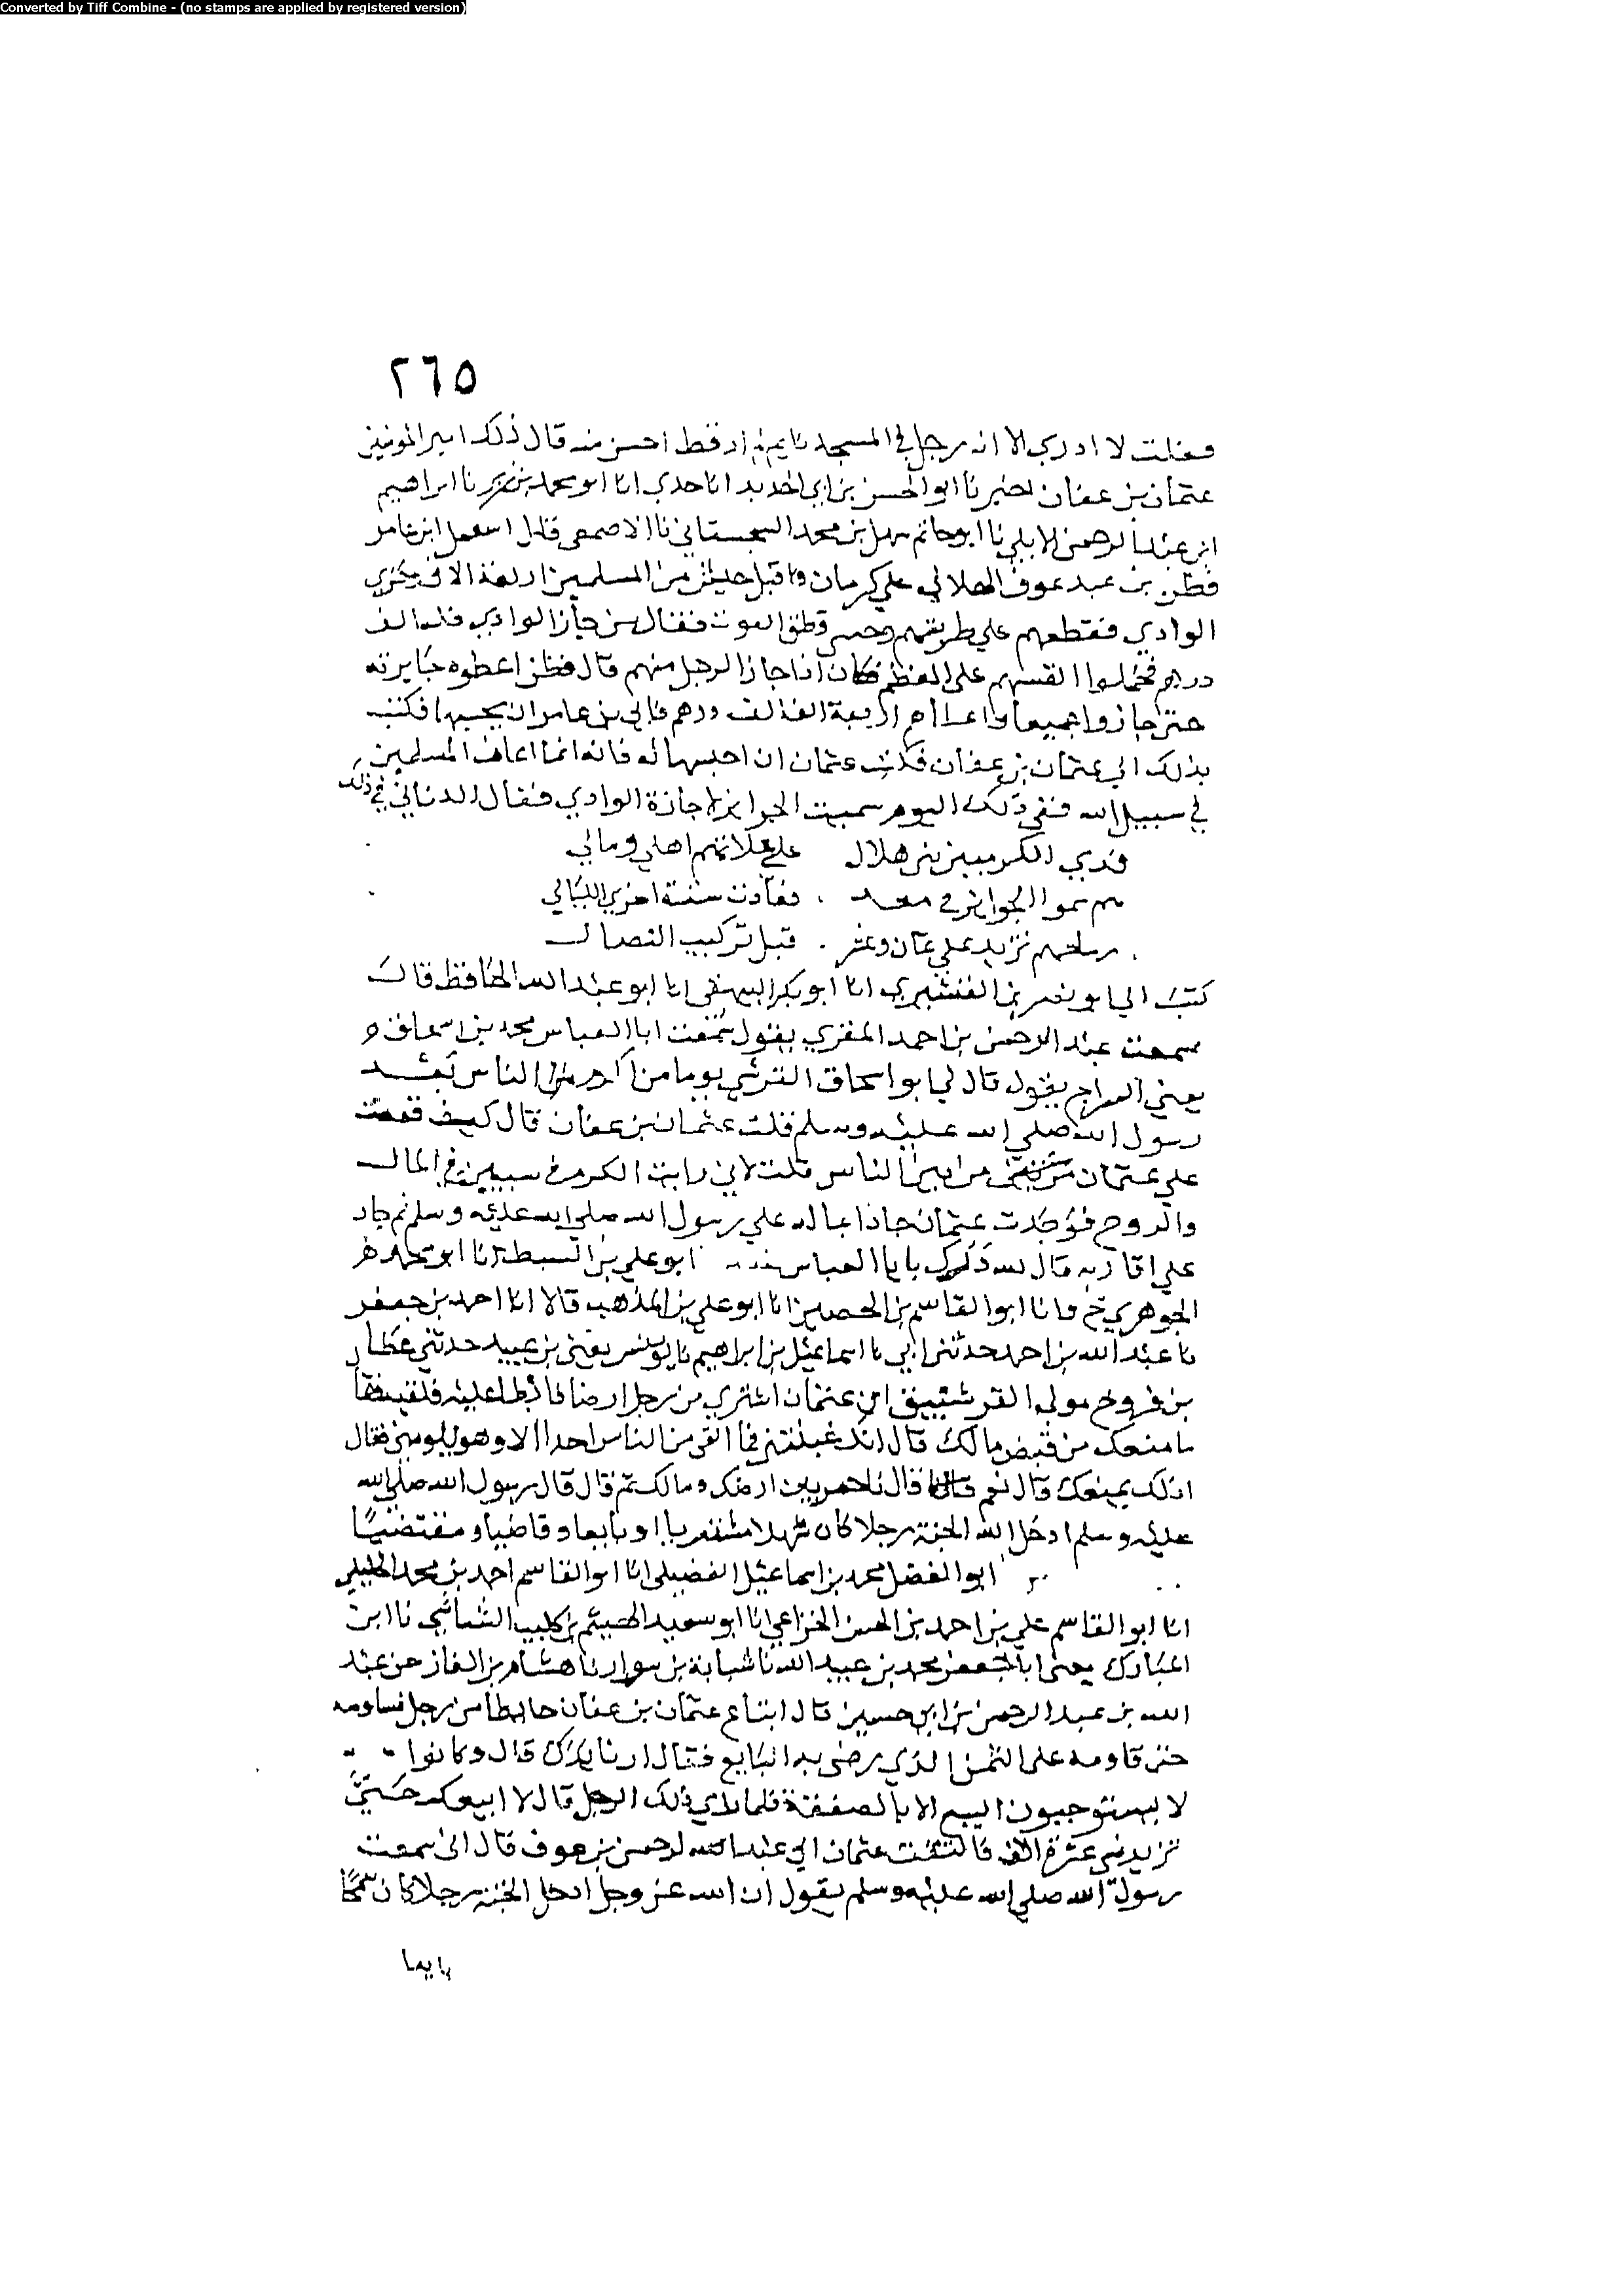 Converted by Tiff Combine - (no stamps are applied by registered version)
٢٦٥
فقلت لا ادري الا انه رجل في المسجد نايم لم ار قط احسن منه قال ذلك امير المومنين
عثمان بن عفان اخبرنا ابو الحسن بن ابي الحديد انا جدي انا ابو محمد بن زبر نا ابراهيم
ابن عبد الرحمن الابلي نا ابو حاتم سهل بن محمد السجستاني نا الاصمعي قال استعمل ابن عامر
قطن بن عبد عوف الهلالي علي كرمان واقبل جيش من المسلمين اربعة الاف فجري
الوادي فقطعهم علي طريقهم وخشي قطن الفوت فقال من جاز الوادي فله الف
درهم فحملوا انفسهم على العظم فكان اذا جاز الرجل منهم قال قطن اعطوه جايزته
حتى جازوا جميعا واعطاهم اربعة الف الف درهم فابي بن عامر ان يحسبها فكتب
بذلك الي عثمان بن عفان فكتب عثمان ان احسبها له فانه انما اعان المسلمين
في سبيل الله ففي ذلك اليوم سميت الجوايز لاجازة الوادي فقال الكناني في ذلك
فدي للاكرمين بني هلال علي علاتهم اهلي ومالي
هم سموا الجوايز في معد . فعادت سنة اخري الليالي
. رماحهم تزيد علي ثمان وعشر . قبل تركيب النصال
كتب الي ابو نصر بن القشيري انا ابو بكر البيهقي انا ابو عبد الله الحافظ قال
سمعت عبد الرحمن بن احمد المقري يقول سمعت ابا العباس محمد بن اسحاق
يعني السراج يقول قال لي ابو اسحاق القرشي يوما من اكرم الناس بعد
رسول الله صلي الله عليه وسلم فقلت عثمان بن عفان قال كيف وقعت
علي عثمان من بين الناس قلت لاني رايت الكرم في سببين في المال
والروح فوجدت عثمان جاد بماله علي رسول الله صلي الله عليه وسلم ثم جاد
علي اقاربه قال لله درك يا ابا العباس ابو علي بن السبط انا ابو محمد
الجوهري ح وانا ابو القاسم بن الحصين انا ابو علي بن المذهب قالا انا احمد بن جعفر
نا عبد الله بن احمد حدثني ابي نا اسماعيل بن ابراهيم نا يونس يعني بن عبيد حدثني عطا
بن فروخ مولي القرشيين ان عثمان اشتري من رجل ارضا فابطا عليه فلقيه فقال
ما منعك من قبض مالك قال انك غبنتني فما القى من الناس احدا الا وهو يلومني فقال
اذلك يمنعك قال نعم قال فاختر بين ارضك ومالك ثم قال قال رسول الله صلي الله
عليه وسلم ادخل الله الجنة رجلا كان سهلا مشتريا او بايعا وقاضيا ومقتضيا
ابو الفضل محمد بن اسماعيل الفضيلي انا ابو القاسم احمد بن محمد الخليلي
انا ابو القاسم علي بن احمد بن الحسن الخزاعي انا ابو سعيد الهيثم بن كليب الشاشي نا ابن
المبارك يعني ابا جعفر محمد بن عبيد الله نا شبابة بن سوار نا هشام بن الغاز عن عبد
الله بن عبد الرحمن بن ابي حسين قال ابتاع عثمان بن عفان حايطا من رجل فساومه
حتى قاومه على الثمن الذي رضي به البايع فقال ارنا يدك قال وكانوا
لا يستوجبون البيع الا بالصفقة فلما راي ذلك الرجل قال لا ابيعك حتي
تزيدني عشرة الاف فالتفت عثمان الي عبد الرحمن بن عوف قال اني سمعت
رسول الله صلي الله عليه وسلم يقول ان الله عز وجل ادخل الجنة رجلا كان سمحا
بايعا